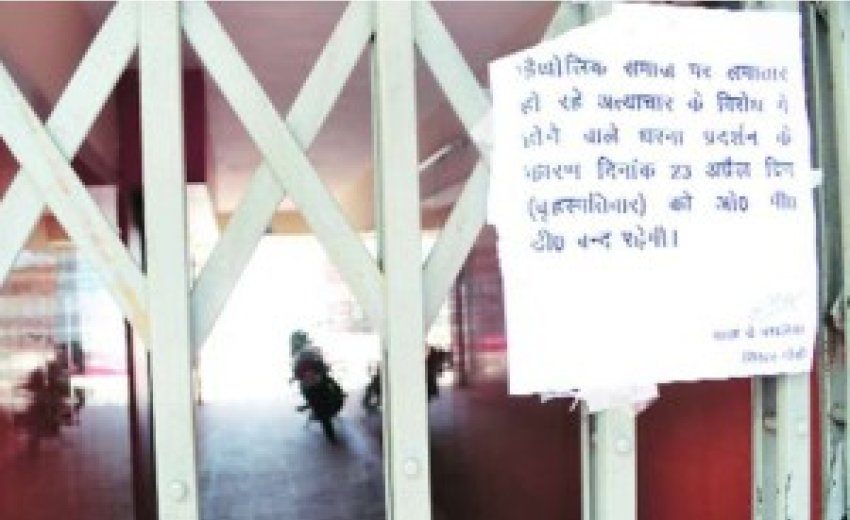 कैथोलिक समाज पर लगातार
हो रहे अत्याचार के विरोध में
होने वाले धरना प्रदर्शन के
कारण दिनांक 23 अप्रैल दिन
(वृहस्पतिवार) को ओ0 पी0
डी0 बन्द रहेगी।